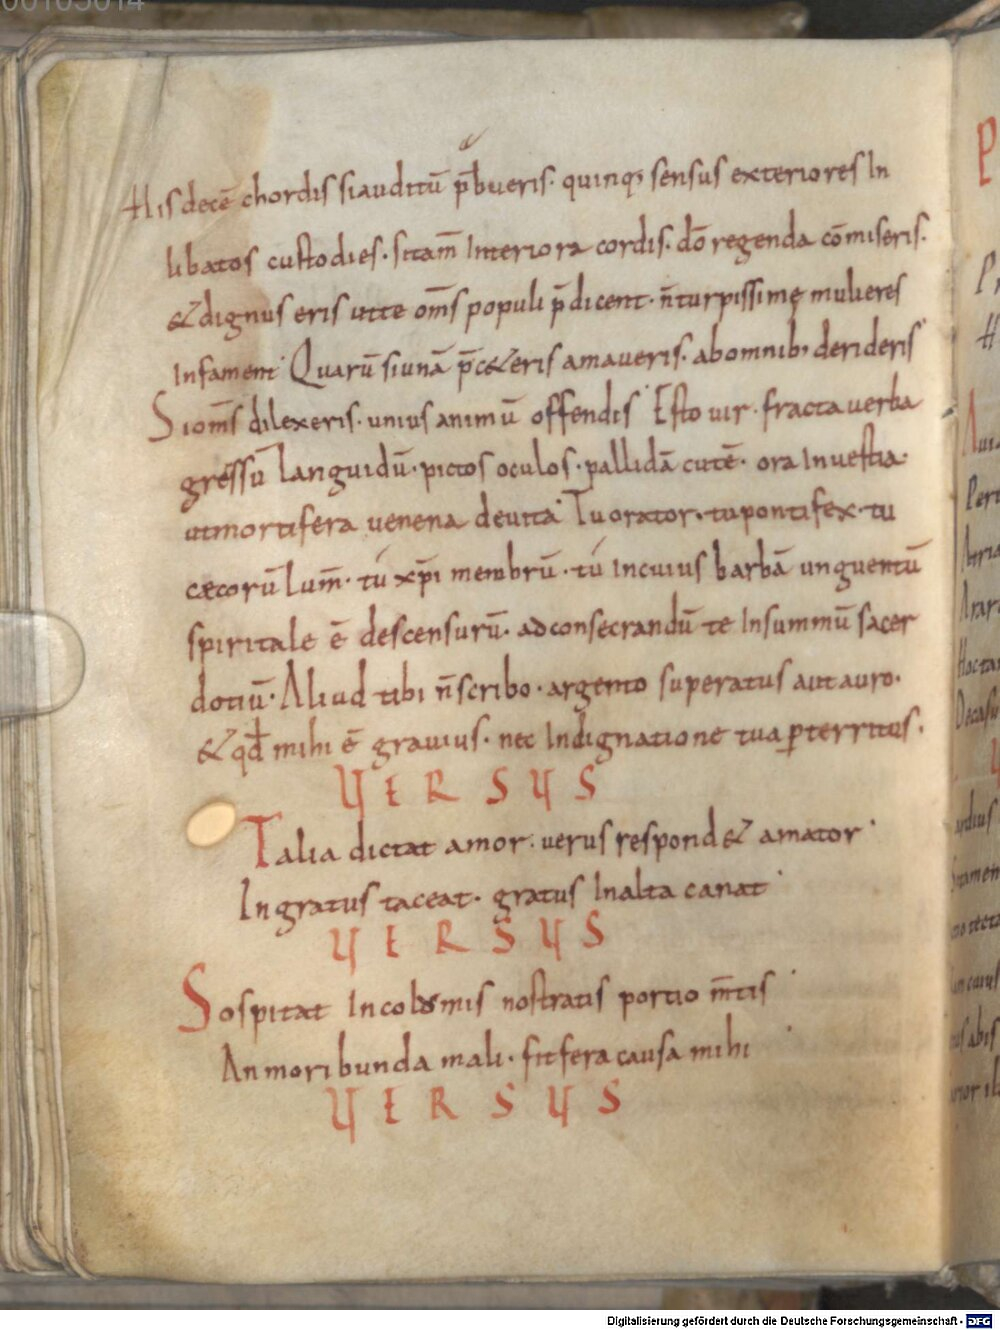 00105014
His decē chordis si auditū p̄bueris. quinq; sensus exteriores In
libatos custodies. si tam̄ Interiora cordis. dō regenda cōmiseris.
& dignus eris ut te om̄s populi p̄dicent. n̄ turpissimę mulieres
Infament. Quarū si unā p̄ceteris amaueris. ab omnib; derideris
Si om̄s dilexeris. unius animū offendis. Esto uir. fracta uerba
gressū languidū. pictos oculos. pallidā cutē. ora Inuestia.
ut mortifera uenena deuita. Tu orator. tu pontifex. tu
cęcorū lum̄. tú xp̄i membrū. tú In cuius barbā unguentū
spiritale ē descensurū. ad consecrandū te In summū sacer
dotiū. Aliud tibi n̄ scribo. argento superatus aut auro.
& qd̄ mihi ē grauius. nec Indignatione tua ꝑterritus.
VERSUS
Talia dictat amor. uerus respond& amator.
Ingratus taceat. gratus In alta canat.
VERSUS
Sospitat nostratis portio m̄tis.
An moribunda mali. fit fera causa mihi.
VERSUS
P
Digitalisierung gefördert durch die Deutsche Forschungsgemeinschaft - DFG